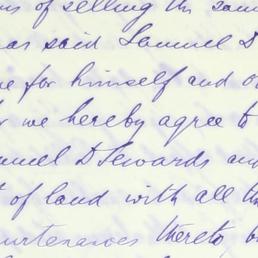 ns of selling the sam
as said Samuel D
e for himself and o
r we hereby agree to
muel D Sewards and
t of land with all th
urtenances thereto b